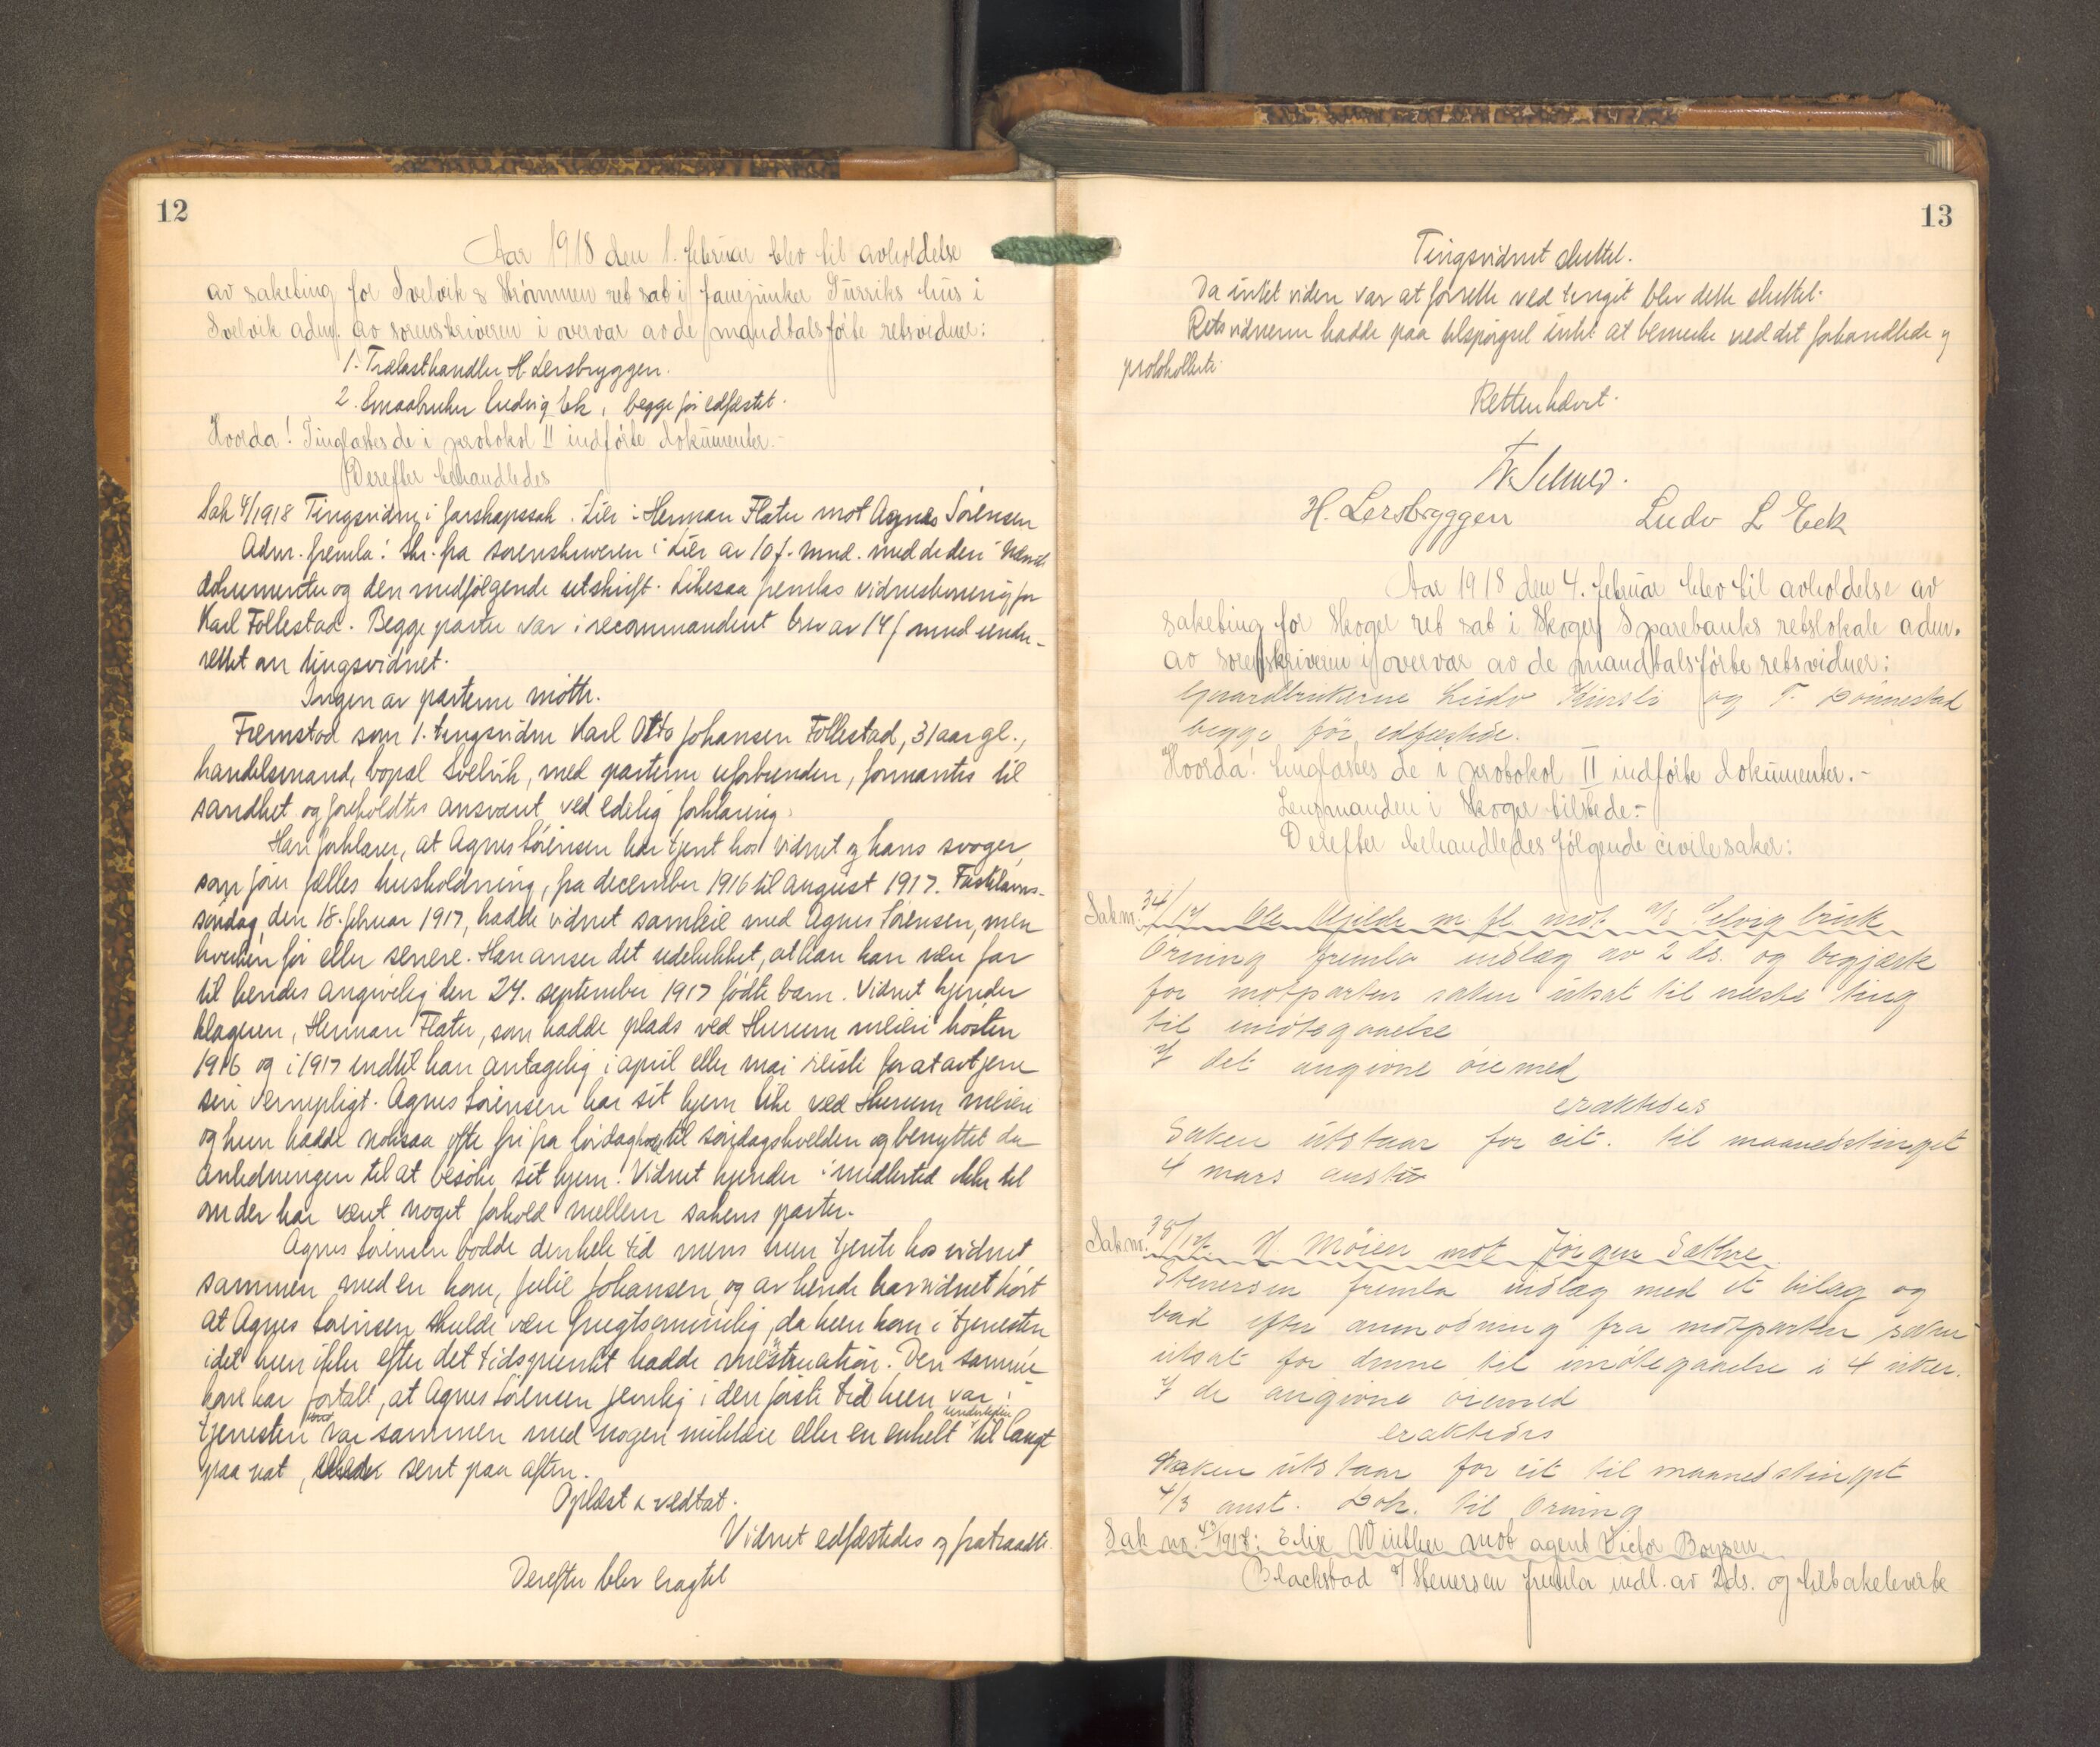 12
Aar 1918 den 1. februar blev til avholdelse
av saketing for Svelvik & Strømmen ret sat i fanejunker Tursriks hus i
Svelvik adm. av sorenskriveren i overvær av de mandtalsførte retsvidner:
1. Trælasthandler H. Lersbryggen.
2. Smaabruker Ludvig Eek, begge før edfæstet.
Hvorda! Tinglæstes de i protokol II indførte dokumenter.-
Derefter behandledes
Sak 4/1918 Tingsvidne i farskapssak. Lier: Herman Flatu mot Agnes Sörensen
Adm. fremla: Skr. fra sorenskriveren i Lier av 10 f. mnd. med de deri nævnte
dokumenter og den medfölgende utskrift. Likesaa fremlas vidnestevning for
Karl Follestad. Begge parter var i recommandert brev av 14/ mnd under-
rettet om tingsvidnet.
Ingen av parterne mötte.
Fremstod som 1. tingsvidne Karl Otto Johansen Follestad, 31 aar gl.,
handelsmand, bopæl Svelvik, med parterne uforbunden, formantes til
sandhet og foreholdtes ansvaret ved edelig forklaring.
Han forklarer, at Agnes Sörensen har tjent hos vidnet og hans svoger,
som förer fælles husholdning, fra december 1916 til august 1917. Fastelavns-
söndag, den 18. februar 1917, hadde vidnet samleie med Agnes Sörensen, men
hverken för eller senere. Han anser det udelukket, at han kan være far
til hendes angivelig den 24. september 1917 födte barn. Vidnet kjender
klageren, Herman Flatu, som hadde plads ved Hurum meieri hösten
1916 og i 1917 indtil han antagelig i april eller mai reiste for at avtjene
sin vernepligt. Agnes Sörensen har sit hjem like ved Hurum meieri
og hun hadde noksaa ofte fri fra lördag til söndagskvelden og benyttet da
anledningen til at besöke sit hjem. Vidnet kjender imidlertid ikke til
om der har været noget forhold mellem sakens parter.
Agnes Sörensen bodde den hele tid mens hun tjente hos vidnet
sammen med en kone, Julie Johansen, og av hende har vidnet hört
at Agnes Sörensen skulde være frugtsommelig, da hun kom i tjenesten,
idet hun ikke efter det tidspunkt hadde menstruation. Den samme
kone har fortalt, at Agnes Sörensen jevnlig i den förste tid hun var i
tjenesten var sammen med nogen militære eller en enkelt undertiden til langt
paa nat, sent paa aften.
Oplæst & vedtat.
Vidnet edfæstedes og fratraadte.
Derefter blev eragtet
13
Tingsvidnet sluttet.
Da intet videre var at forrette ved tinget blev dette sluttet.
Retsvidnerne hadde paa tilspörgsel intet at bemerke ved det forhandlede og
protokollerte.
Retten hævet.
H. Lersbryggen Ludv L Eek
Aar 1918 den 4. februar blev til avholdelse av
saketing for Skoger ret sat i Skoger Sparebanks retslokale adm.
av sorenskriveren i overvær av de mandtalsførte retsvidner:
Gaardbrukerne Ludv Kirsli og T. Lönnestad
begge för edfæstede.
Hvorda! tinglæstes de i protokol II indførte dokumenter.-
Lensmanden i Skoger tilstede.-
Derefter behandledes følgende civile saker:
Sak nr. 34/17 Ole Kjilde m. fl. mot A/S Selvig bruk
Orning fremla indlæg av 2 ds. og begjærte
for motparten saken utsat til næste ting
til imötegaaelse
I det angivne öiemed
eraktedes
Saken utstaar for cit. til maanedstinget
4 mars anst
Sak nr. 38/17. Moien mot Jörgen Sæthre
Stenersen fremla indlæg med et bilag og
bad efter anmodning fra motparten saken
utsat for denne til imötegaaelse i 4 uker.
I de angivne öiemed
eraktedes
Saken utstaar for cit til maanedstinget
4/3 anst. Dok. til Orning
Sak nr. 43/1917: Elise Winther mot agent Victor Boysen
Blackstad f/ Stenersen fremla indl. av 2ds. og tilbakeleverte